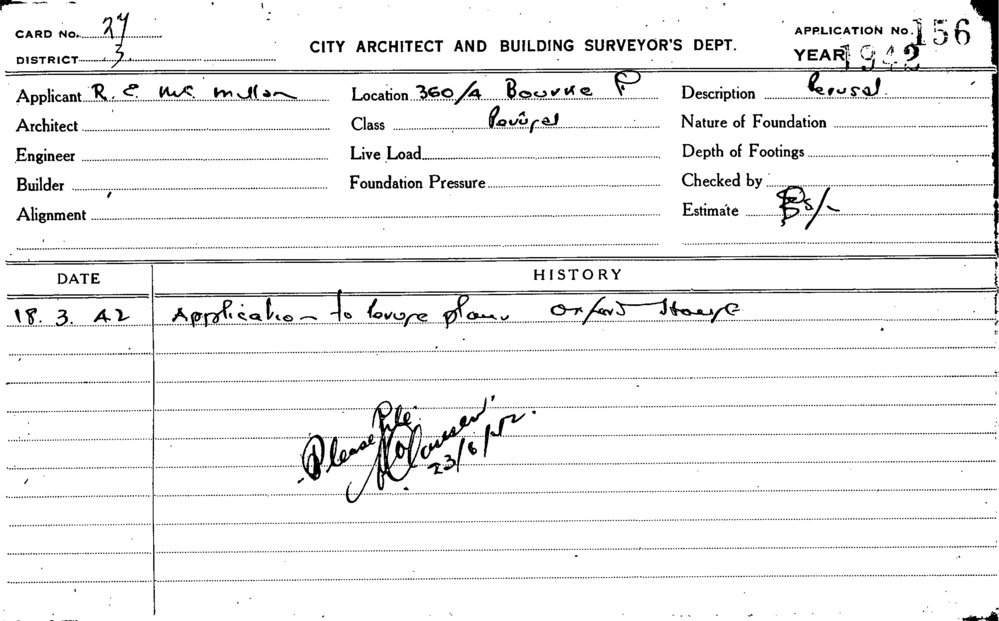 CARD No. 27
DISTRICT 3
CITY ARCHITECT AND BUILDING SURVEYOR'S DEPT.
APPLICATION No. 156
YEAR 1942
Applicant R. E. McMillan Location 360/4 Bourke Description Perusal.
Architect Class Perusal Nature of Foundation
Engineer Live Load Depth of Footings
Builder Foundation Pressure Checked by
Alignment Estimate 5/-
DATE HISTORY
18. 3. 42 Application to peruse plans Oxford House
Please File
23/6/52.